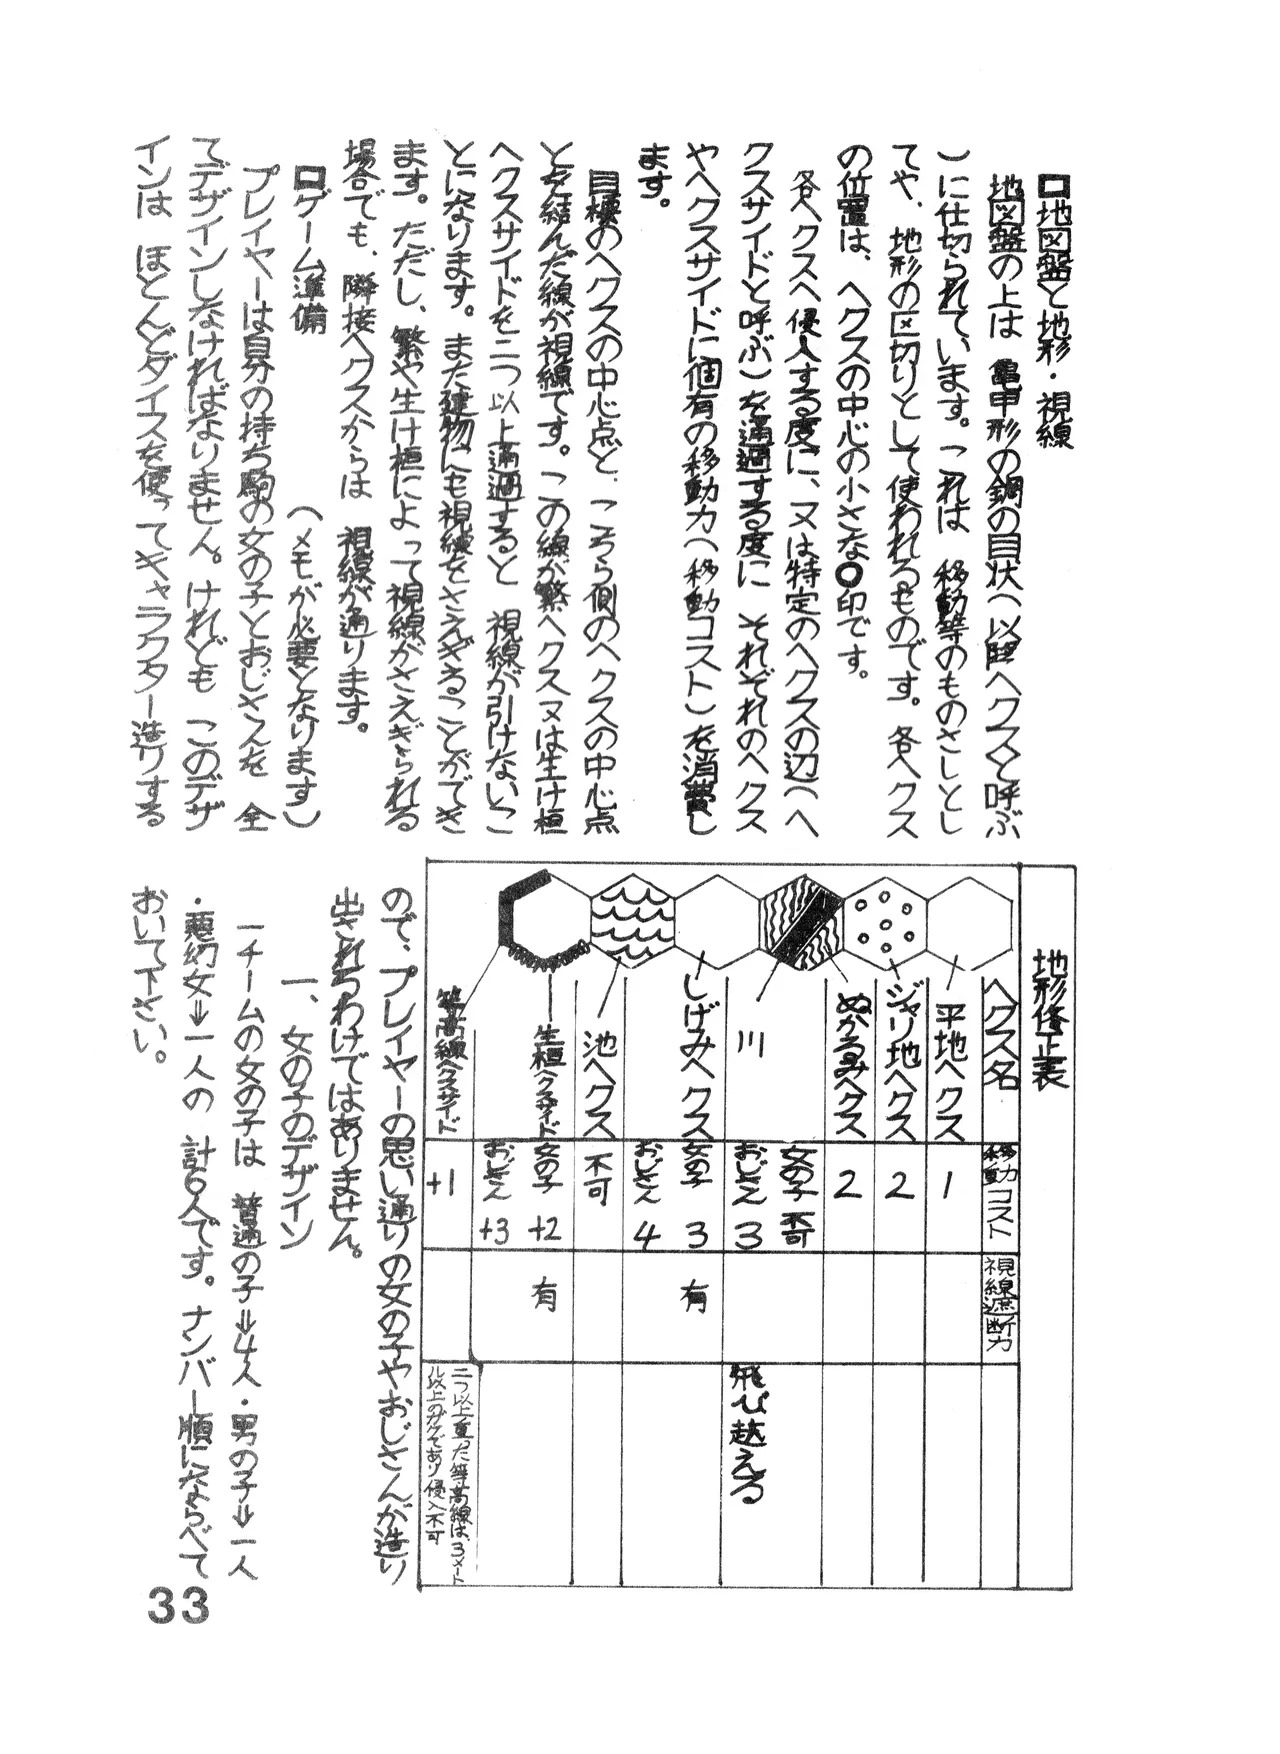 □地図盤と地形・視線
地図盤の上は 亀甲形の網の目状(以降ヘクスと呼ぶ
)に仕切られています。これは 移動等のものさしとし
てや、地形の区切りとして使われるものです。各ヘクス
の位置は、ヘクスの中心の小さな○印です。
各ヘクスへ侵入する度に、又は特定のヘクスの辺(ヘ
クスサイドと呼ぶ)を通過する度に それぞれのヘクス
やヘクスサイドに個有の移動力(移動コスト)を消費し
ます。
目標のヘクスの中心点と、こちら側のヘクスの中心点
とを結んだ線が視線です。この線が繁ヘクス又は生け垣
ヘクスサイドを二つ以上通過すると 視線が引けないこ
とになります。また建物にも視線をさえぎることができ
ます。ただし、繁や生け垣によって視線がさえぎられる
場合でも、隣接ヘクスからは 視線が通ります。
□ゲーム準備 (メモが必要となります)
プレイヤーは自分の持ち駒の女の子とおじさんを 全
てデザインしなければなりません。けれども このデザ
インは ほとんどダイスを使ってキャラクター造りする
地形修正表
ヘクス名 移動力コスト 視線遮断力
平地ヘクス 1
ジャリ地ヘクス 2
ぬかるみヘクス 2
川 女の子 不可 おじさん 3 飛び越える
しげみヘクス 女の子 3 おじさん 4 有
池ヘクス 不可
生垣ヘクスサイド 女の子 +2 おじさん +3 有
等高線ヘクスサイド +1 二つ以上重った等高線は、3メート
ル以上のガケであり侵入不可
ので、プレイヤーの思い通りの女の子やおじさんが造り
出されるわけではありません。
一、女の子のデザイン
一チームの女の子は 普通の子⇒4人・男の子⇒一人
・悪幼女⇒一人の 計6人です。ナンバー順にならべて
おいて下さい。
33